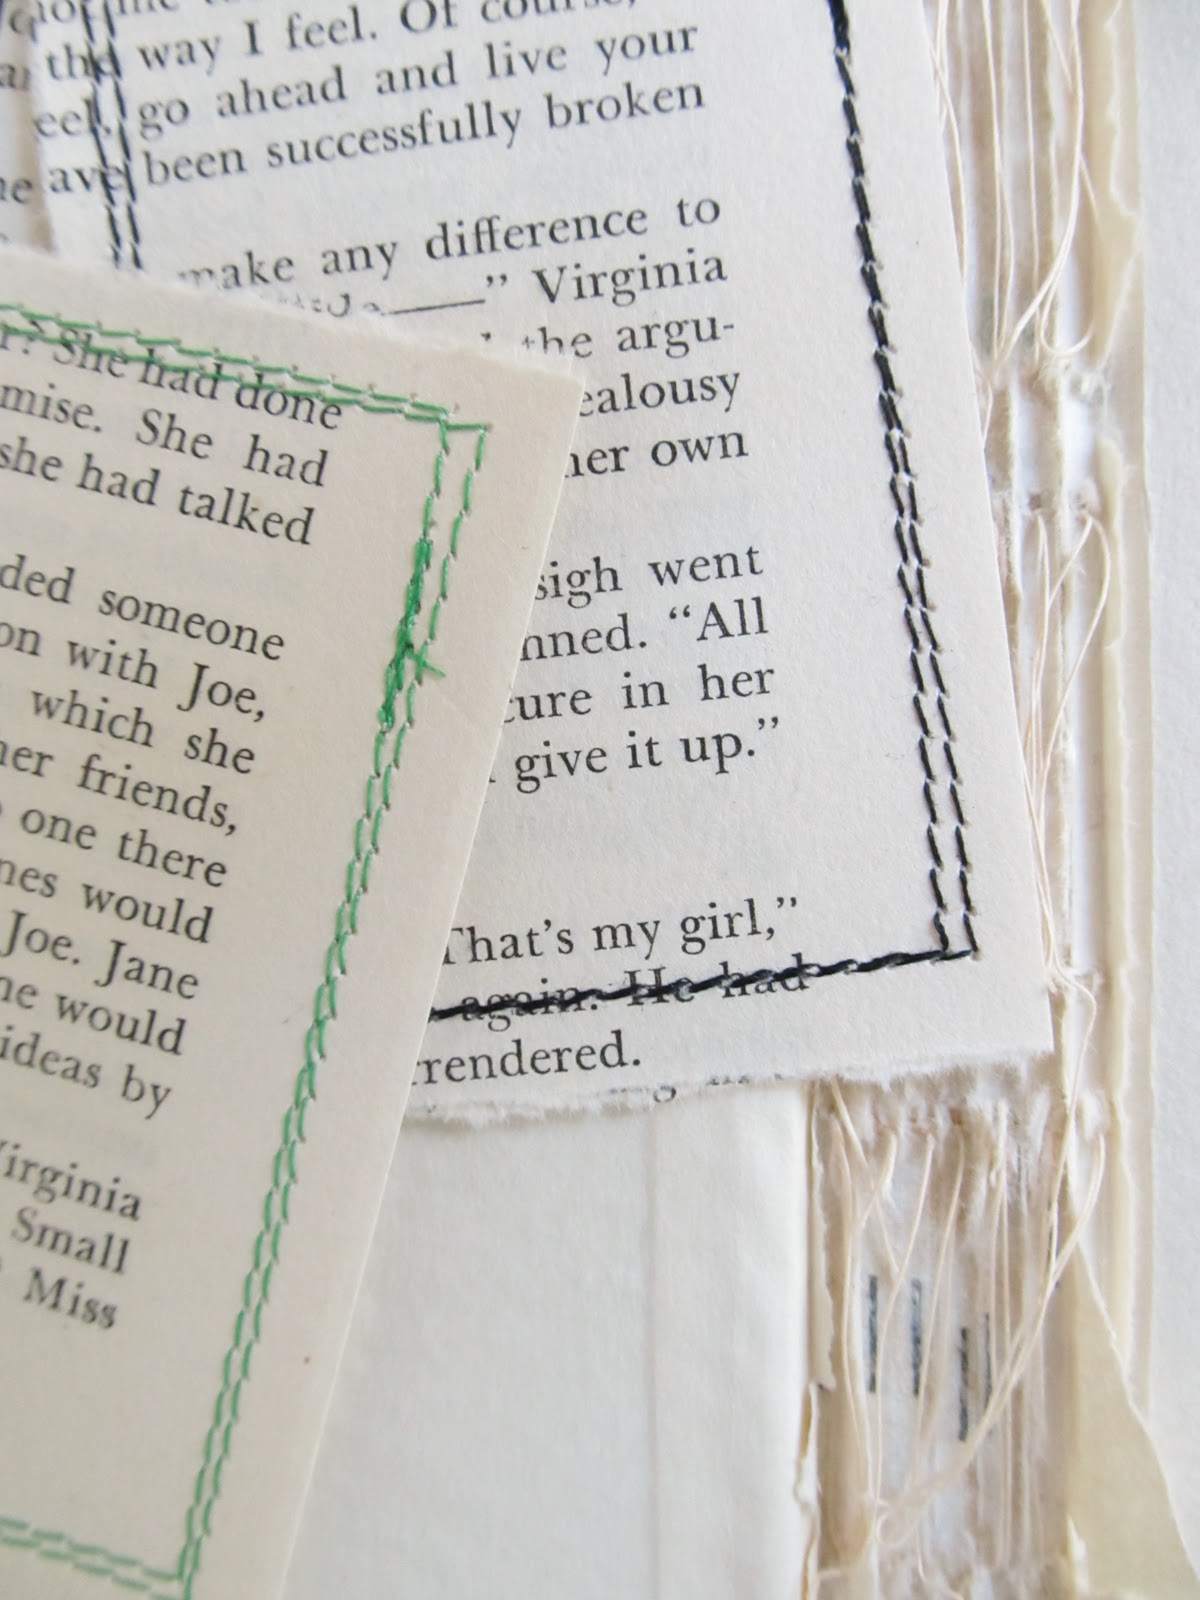 the way I feel. Of course,
go ahead and live your
ave been successfully broken
make any difference to
" Virginia
the argu-
ealousy
her own
sigh went
nned. "All
ture in her
give it up."
That's my girl,"
again. He had
rrendered.
r? She had done
mise. She had
she had talked
ded someone
on with Joe,
which she
her friends,
one there
nes would
Joe. Jane
he would
ideas by
Virginia
Small
Miss